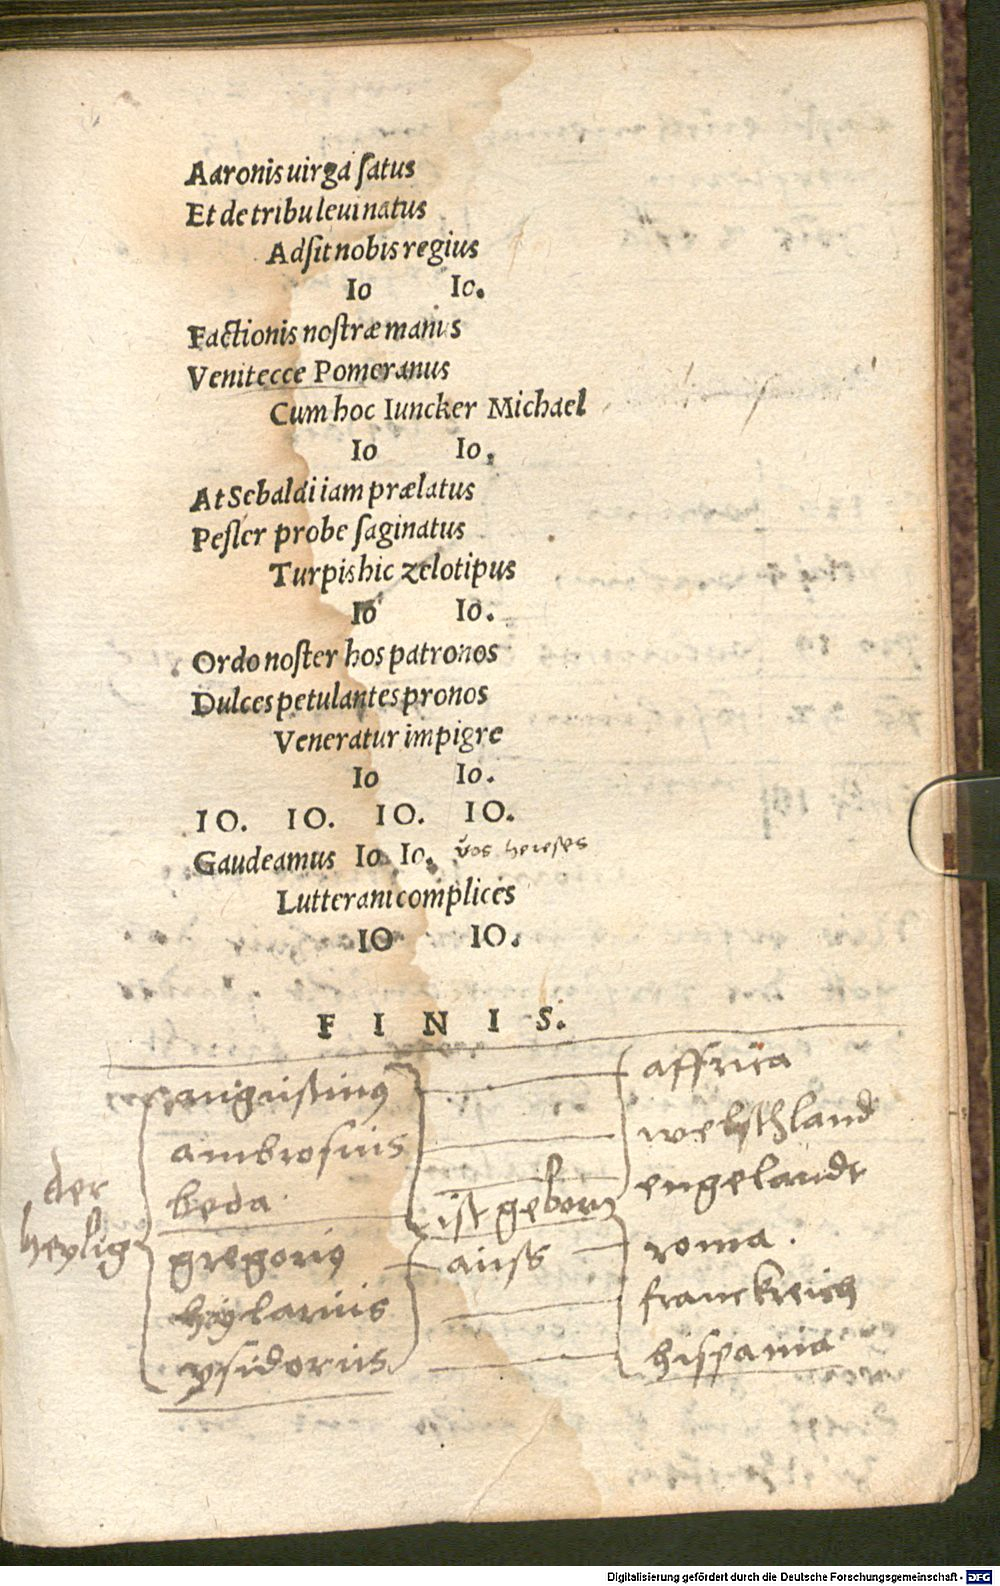 Aaronis uirga ſatus
Et de tribu leui natus
Adſit nobis regius
Io Io.
Factionis noſtræ manus
Venit ecce Pomeranus
Cum hoc Iuncker Michael
Io Io.
At Sebaldi iam prælatus
Peſler probe ſaginatus
Turpis hic zelotipus
Io Io.
Ordo noſter hos patronos
Dulces petulantes pronos
Veneratur impigre
Io Io.
IO. IO. IO. IO.
Gaudeamus Io Io. vos hereses
Lutterani complices
IO IO.
F I N I S.
der heylig
augustinus
ambrosius
beda
gregorius
hylarius
ysidorius
ist geborn
auss
affrica
welschland
engelandt
roma.
franckreich
hispania
Digitalisierung gefördert durch die Deutsche Forschungsgemeinschaft - DFG